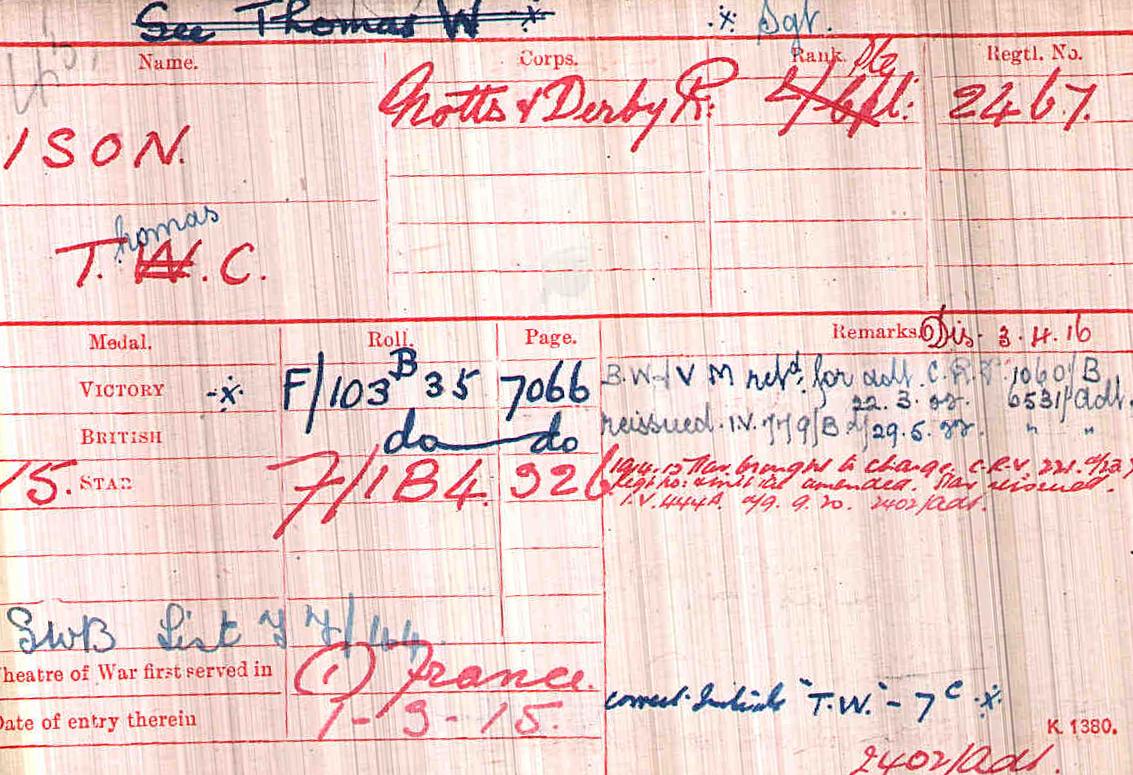 See Thomas W * * Sgt.
Name. Corps. Rank. Regtl. No.
Pte
ISON. Notts & Derby R. L/Cpl. 2467.
homas
T. W. C.
Medal. Roll. Page. Remarks. Dis. 3.4.16
VICTORY * F/103 B 35 7066 B.W. & V M retd. for adt. C.R.V. 1060/B
22. 3. 6531/Adt.
BRITISH do do reissued. I.V. 779/B d/29.5. " "
15. STAR 7/1B4. 926 1914-15 Star brought to charge. C.R.V. 221.
Regt no: & initial amended. Star reissued.
I.V. 444A. d/9. 9. 20. 2402/Adt.
SWB List 44
Theatre of War first served in (1) France.
Date of entry therein 1-3-15. correct Initials "T.W." - 7 C *
K. 1380.
2402/Adt.